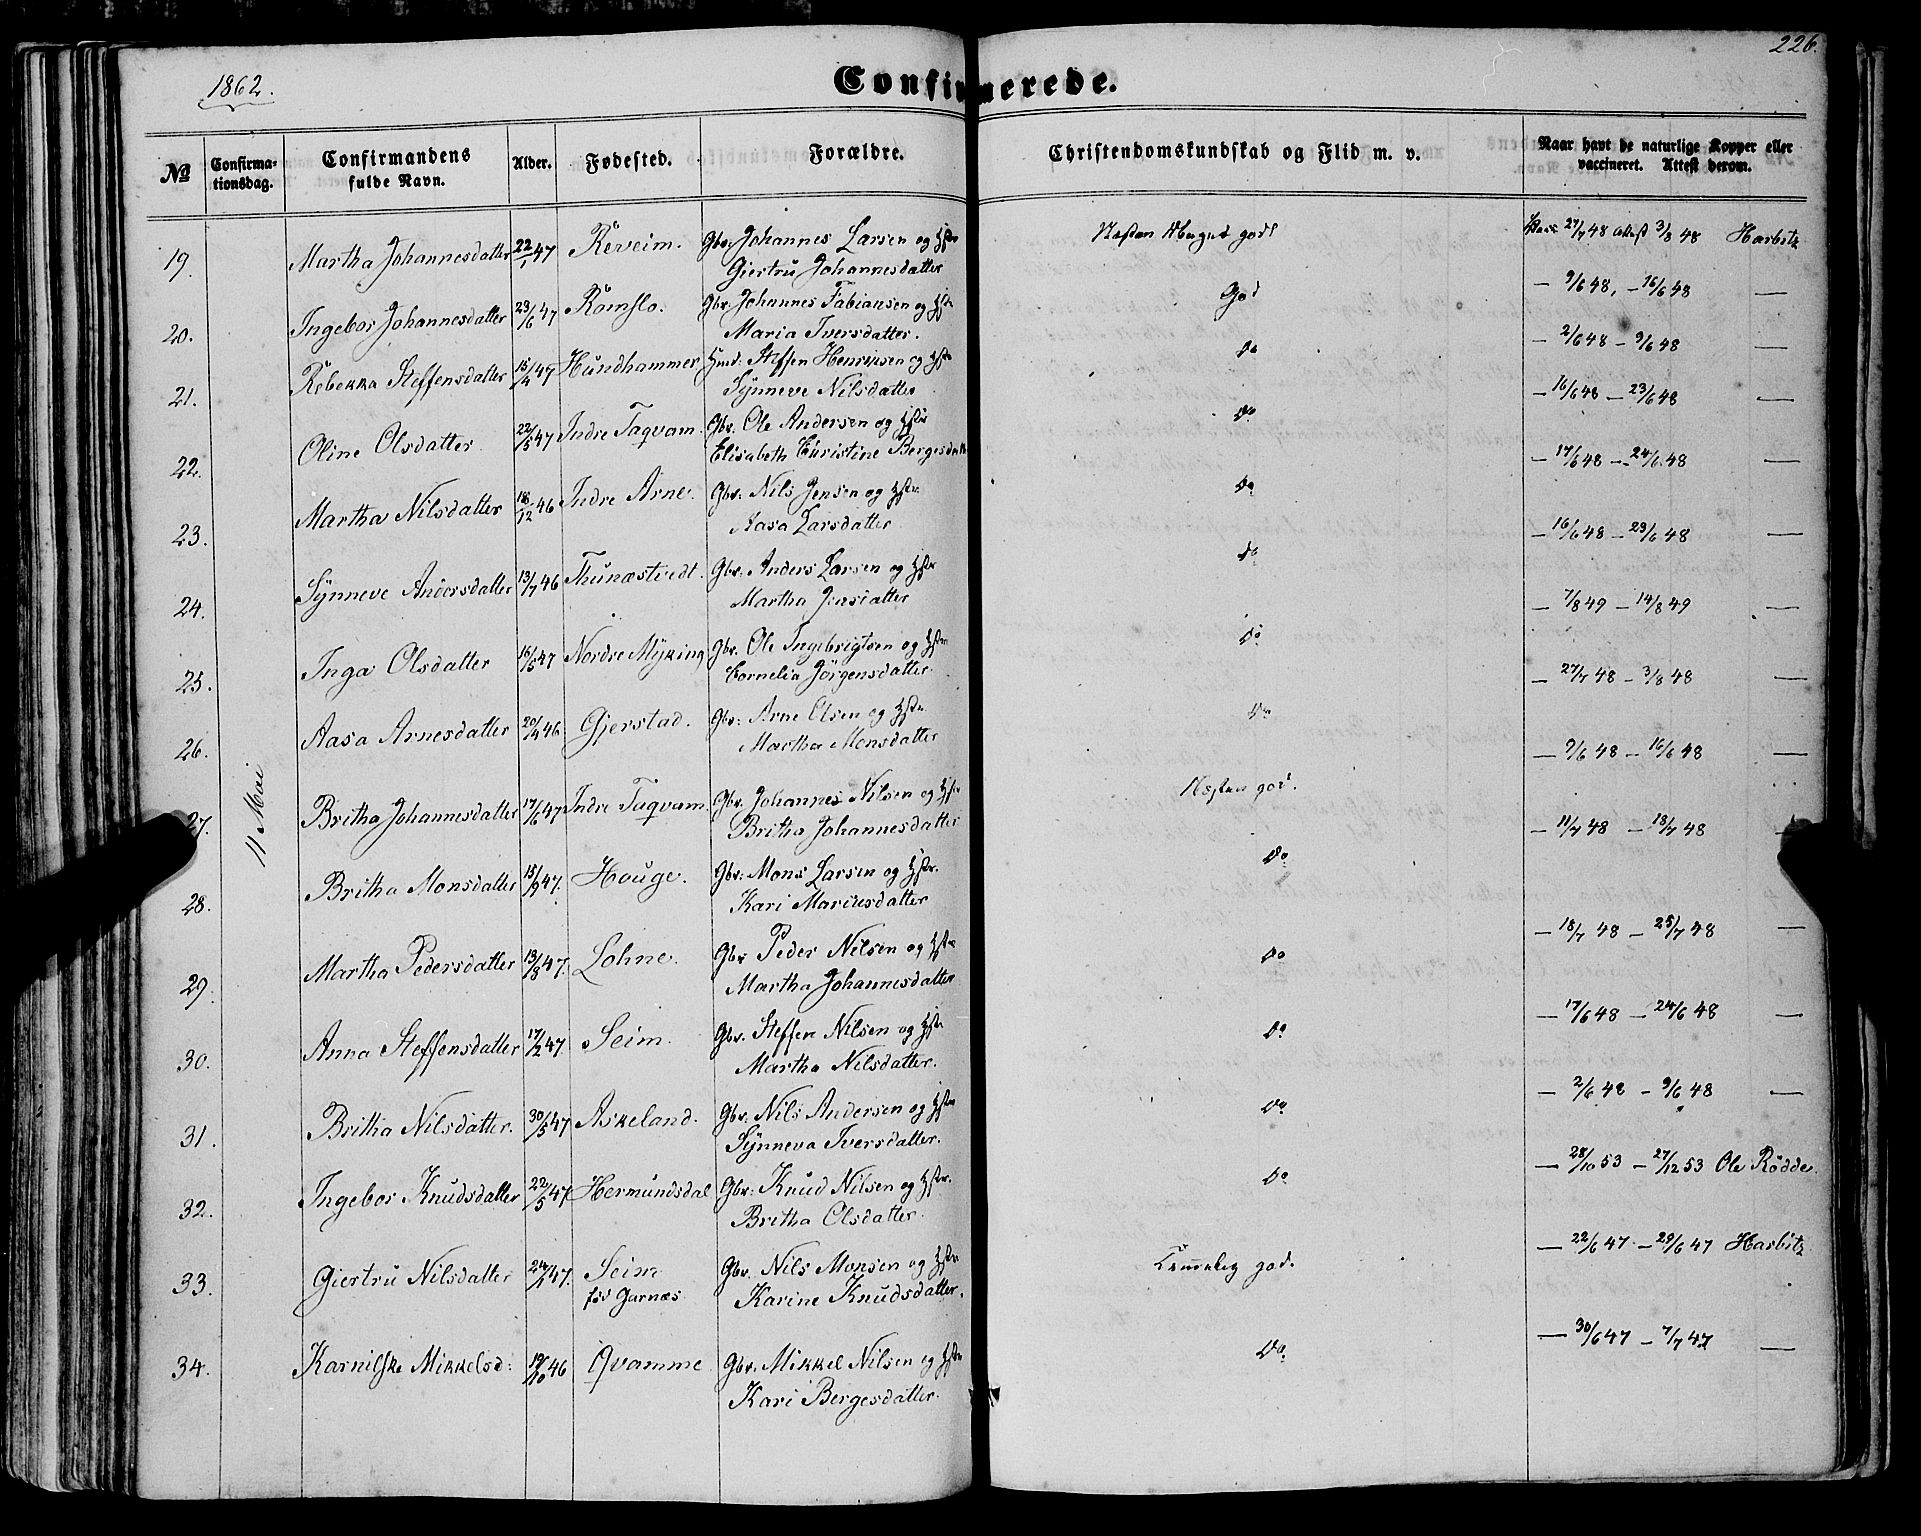 1862.
226.
Confirmerede.
№ Confirma-tionsdag. Confirmandens fulde Navn. Alder. Fødested. Forældre. Christendomskundskab og Flid m. v. Naar havt de naturlige Kopper eller vaccineret. Attest derom.
11 Mai
19. Martha Johannesdatter 22/1 47 Røveim. Gbr. Johannes Larsen og Hstr 27/7 48 3/8 48 Harbitz
Giertrü Johannesdatter
20. Ingebor Johannesdatter 23/6 47 Romslo. Gbr. Johannes Fabiansen og Hstr God — 9/6 48, — 16/6 48 —
Maria Iversdatter.
21. Rebekka Steffensdatter 15/4 47 Hundhammer Hmd. Steffen Henriksen og Hstr Do — 2/6 48 — 9/6 48 —
Synneve Nilsdatter
22. Oline Olsdatter 22/5 47 Indre Taqvam. Gbr. Ole Andersen og Hstr Do — 16/6 48 — 23/6 48 —
Elisabeth Christine Bergesdatt
23. Martha Nilsdatter 18/12 46 Indre Arne. Gbr. Nils Jensen og Hstr. Do — 17/6 48 — 24/6 48 —
Aasa Larsdatter
24. Synneve Andersdatter 13/7 46 Thunæstvedt. Gbr. Anders Larsen og Hstr Do — 16/6 48 — 23/6 48 —
Martha Jensdatter
25. Inga Olsdatter 16/5 47 Nordre Myking Gbr. Ole Ingebrigtsen og Hstr Do — 7/8 49 — 14/8 49 —
Cornelia Jörgensdatter.
26. Aasa Arnesdatter 20/4 46 Gjerstad. Gbr. Arne Olsen og Hstr Do — 27/7 48 — 3/8 48 —
Martha Monsdatter
27. Britha Johannesdatter 17/6 47 Indre Taqvam. Gbr. Johannes Nilsen og Hstr Næsten god. — 9/6 48 — 16/6 48 —
Britha Johannesdatter
28. Britha Monsdatter 15/9 47. Houge. Gbr. Mons Larsen og Hstr. Do — 11/7 48 — 18/7 48 —
Kari Mariusdatter
29. Martha Pedersdatter 13/8 47. Lohne. Gbr Peder Nilsen og Hstr Do — 18/7 48 — 25/7 48 —
Martha Johannesdatter
30. Anna Steffensdatter 17/2 47. Seim. Gbr. Steffen Nilsen og Hstr Do — 17/6 48 — 24/6 48 —
Martha Nilsdatter.
31. Britha Nilsdatter. 30/5 47 Askeland. Gbr. Nils Andersen og Hstr Do — 2/6 48 — 9/6 48 —
Synneva Iversdatter.
32. Ingebor Knudsdatter 22/5 47 Hermundsdal Gbr. Knud Nilsen og Hstr. Do — 28/10 53 — 27/12 53 Ole Rödde.
Britha Olsdatter.
33. Giertrü Nilsdatter 24/1 47. Seim Gbr. Nils Monsen og Hstr god. — 22/6 47 — 29/6 47 Harbitz
fød Garnæs. Karine Knudsdatter.
34. Karnilske Mikkelsd: 19/10 46 Qvamme Gbr. Mikkel Nilsen og Hstr Do — 30/6 47 — 7/7 47 —
Kari Bergesdatter.